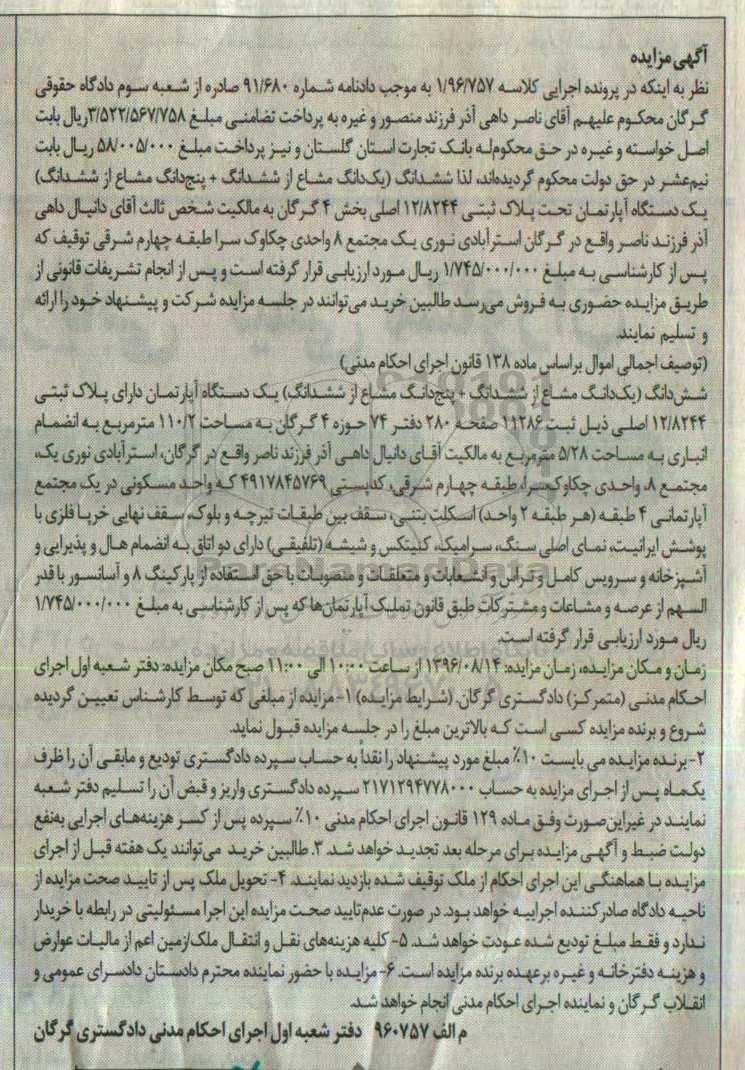 آگهی مزایده
نظر به اینکه در پرونده اجرایی کلاسه ۱/۹۶/۷۵۷ به موجب دادنامه شماره ۹۱/۶۸۰ صادره از شعبه سوم دادگاه حقوقی
گرگان محکوم علیهم آقای ناصر داهی آذر فرزند منصور و غیره به پرداخت تضامنی مبلغ ۳/۵۲۲/۵۶۷/۷۵۸ریال بابت
اصل خواسته و غیره در حق محکوم‌له بانک تجارت استان گلستان و نیز پرداخت مبلغ ۵۸/۰۰۵/۰۰۰ ریال بابت
نیم‌عشر در حق دولت محکوم گردیده‌اند، لذا ششدانگ (یک‌دانگ مشاع از ششدانگ + پنج‌دانگ مشاع از ششدانگ)
یک دستگاه آپارتمان تحت پلاک ثبتی ۱۲/۸۲۴۴ اصلی بخش ۴ گرگان به مالکیت شخص ثالث آقای دانیال داهی
آذر فرزند ناصر واقع در گرگان استرآبادی نوری یک مجتمع ۸ واحدی چکاوک سرا طبقه چهارم شرقی توقیف که
پس از کارشناسی به مبلغ ۱/۷۴۵/۰۰۰/۰۰۰ ریال مورد ارزیابی قرار گرفته است و پس از انجام تشریفات قانونی از
طریق مزایده حضوری به فروش می‌رسد طالبین خرید می‌توانند در جلسه مزایده شرکت و پیشنهاد خود را ارائه
و تسلیم نمایند.
(توصیف اجمالی اموال براساس ماده ۱۳۸ قانون اجرای احکام مدنی)
شش‌دانگ (یک‌دانگ مشاع از ششدانگ + پنج‌دانگ مشاع از ششدانگ) یک دستگاه آپارتمان دارای پلاک ثبتی
۱۲/۸۲۴۴ اصلی ذیل ثبت ۱۱۲۸۶ صفحه ۲۸۰ دفتر ۷۴ حوزه ۴ گرگان به مساحت ۱۱۰/۲ مترمربع به انضمام
انباری به مساحت ۵/۲۸ مترمربع به مالکیت آقای دانیال داهی آذر فرزند ناصر واقع در گرگان، استرآبادی نوری یک،
مجتمع ۸، واحدی چکاوک‌سرا، طبقه چهارم شرقی، کدپستی ۴۹۱۷۸۴۵۷۶۹ که واحد مسکونی در یک مجتمع
آپارتمانی ۴ طبقه (هر طبقه ۲ واحد) اسکلت بتنی، سقف بین طبقات تیرچه و بلوک، سقف نهایی خرپا فلزی با
پوشش ایرانیت، نمای اصلی سنگ، سرامیک، کنیتکس و شیشه (تلفیقی) دارای دو اتاق به انضمام هال و پذیرایی و
آشپزخانه و سرویس کامل و تراس و انشعابات و متعلقات و منصوبات با حق استفاده از پارکینگ ۸ و آسانسور با قدر
السهم از عرصه و مشاعات و مشترکات طبق قانون تملیک آپارتمان‌ها که پس از کارشناسی به مبلغ ۱/۷۴۵/۰۰۰/۰۰۰
ریال مورد ارزیابی قرار گرفته است.
زمان و مکان مزایده، زمان مزایده: ۱۳۹۶/۰۸/۱۴ از ساعت ۱۰:۰۰ الی ۱۱:۰۰ صبح مکان مزایده: دفتر شعبه اول اجرای
احکام مدنی (متمرکز) دادگستری گرگان. (شرایط مزایده) ۱- مزایده از مبلغی که توسط کارشناس تعیین گردیده
شروع و برنده مزایده کسی است که بالاترین مبلغ را در جلسه مزایده قبول نماید.
۲- برنده مزایده می بایست ۱۰٪ مبلغ مورد پیشنهاد را نقداً به حساب سپرده دادگستری تودیع و مابقی آن را ظرف
یک‌ماه پس از اجرای مزایده به حساب ۲۱۷۱۲۹۴۷۷۸۰۰۰ سپرده دادگستری واریز و قبض آن را تسلیم دفتر شعبه
نمایند در غیراین‌صورت وفق ماده ۱۲۹ قانون اجرای احکام مدنی ۱۰٪ سپرده پس از کسر هزینه‌های اجرایی به‌نفع
دولت ضبط و آگهی مزایده برای مرحله بعد تجدید خواهد شد. ۳. طالبین خرید می‌توانند یک هفته قبل از اجرای
مزایده با هماهنگی این اجرای احکام از ملک توقیف شده بازدید نمایند. ۴- تحویل ملک پس از تایید صحت مزایده از
ناحیه دادگاه صادرکننده اجراییه خواهد بود. در صورت عدم‌تایید صحت مزایده این اجرا مسئولیتی در رابطه با خریدار
ندارد و فقط مبلغ تودیع شده عودت خواهد شد. ۵- کلیه هزینه‌های نقل و انتقال ملک/زمین اعم از مالیات عوارض
و هزینه دفترخانه و غیره برعهده برنده مزایده است. ۶- مزایده با حضور نماینده محترم دادستان دادسرای عمومی و
انقلاب گرگان و نماینده اجرای احکام مدنی انجام خواهد شد.
م الف ۹۶۰۷۵۷ دفتر شعبه اول اجرای احکام مدنی دادگستری گرگان
ParsNamadData